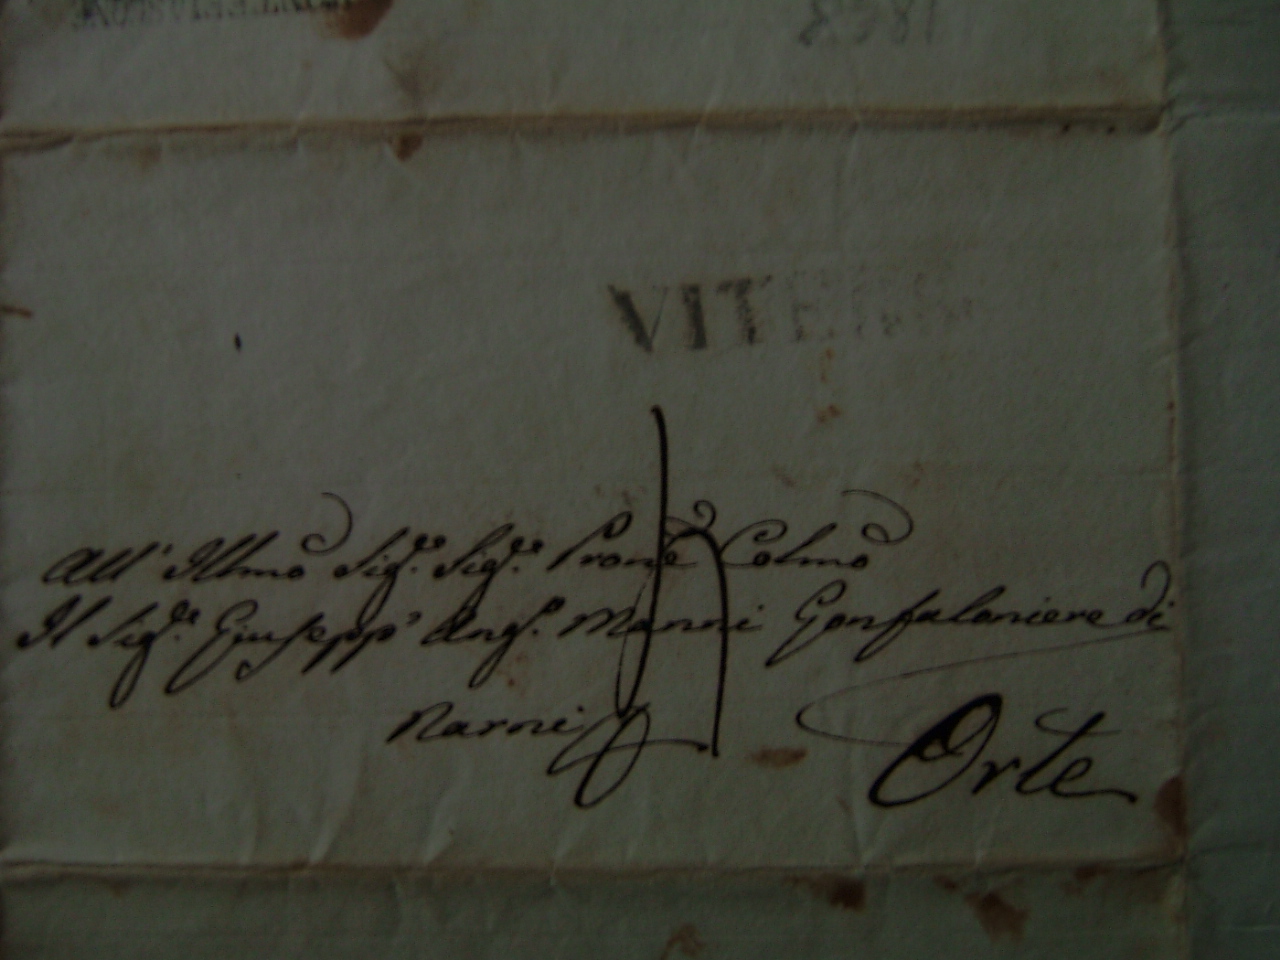 VITERB
All' Illmo Sigre Sigre Prone Colmo
Il Sigre Giusepp' Ango Manni Gonfaloniere di
Narni
Orte